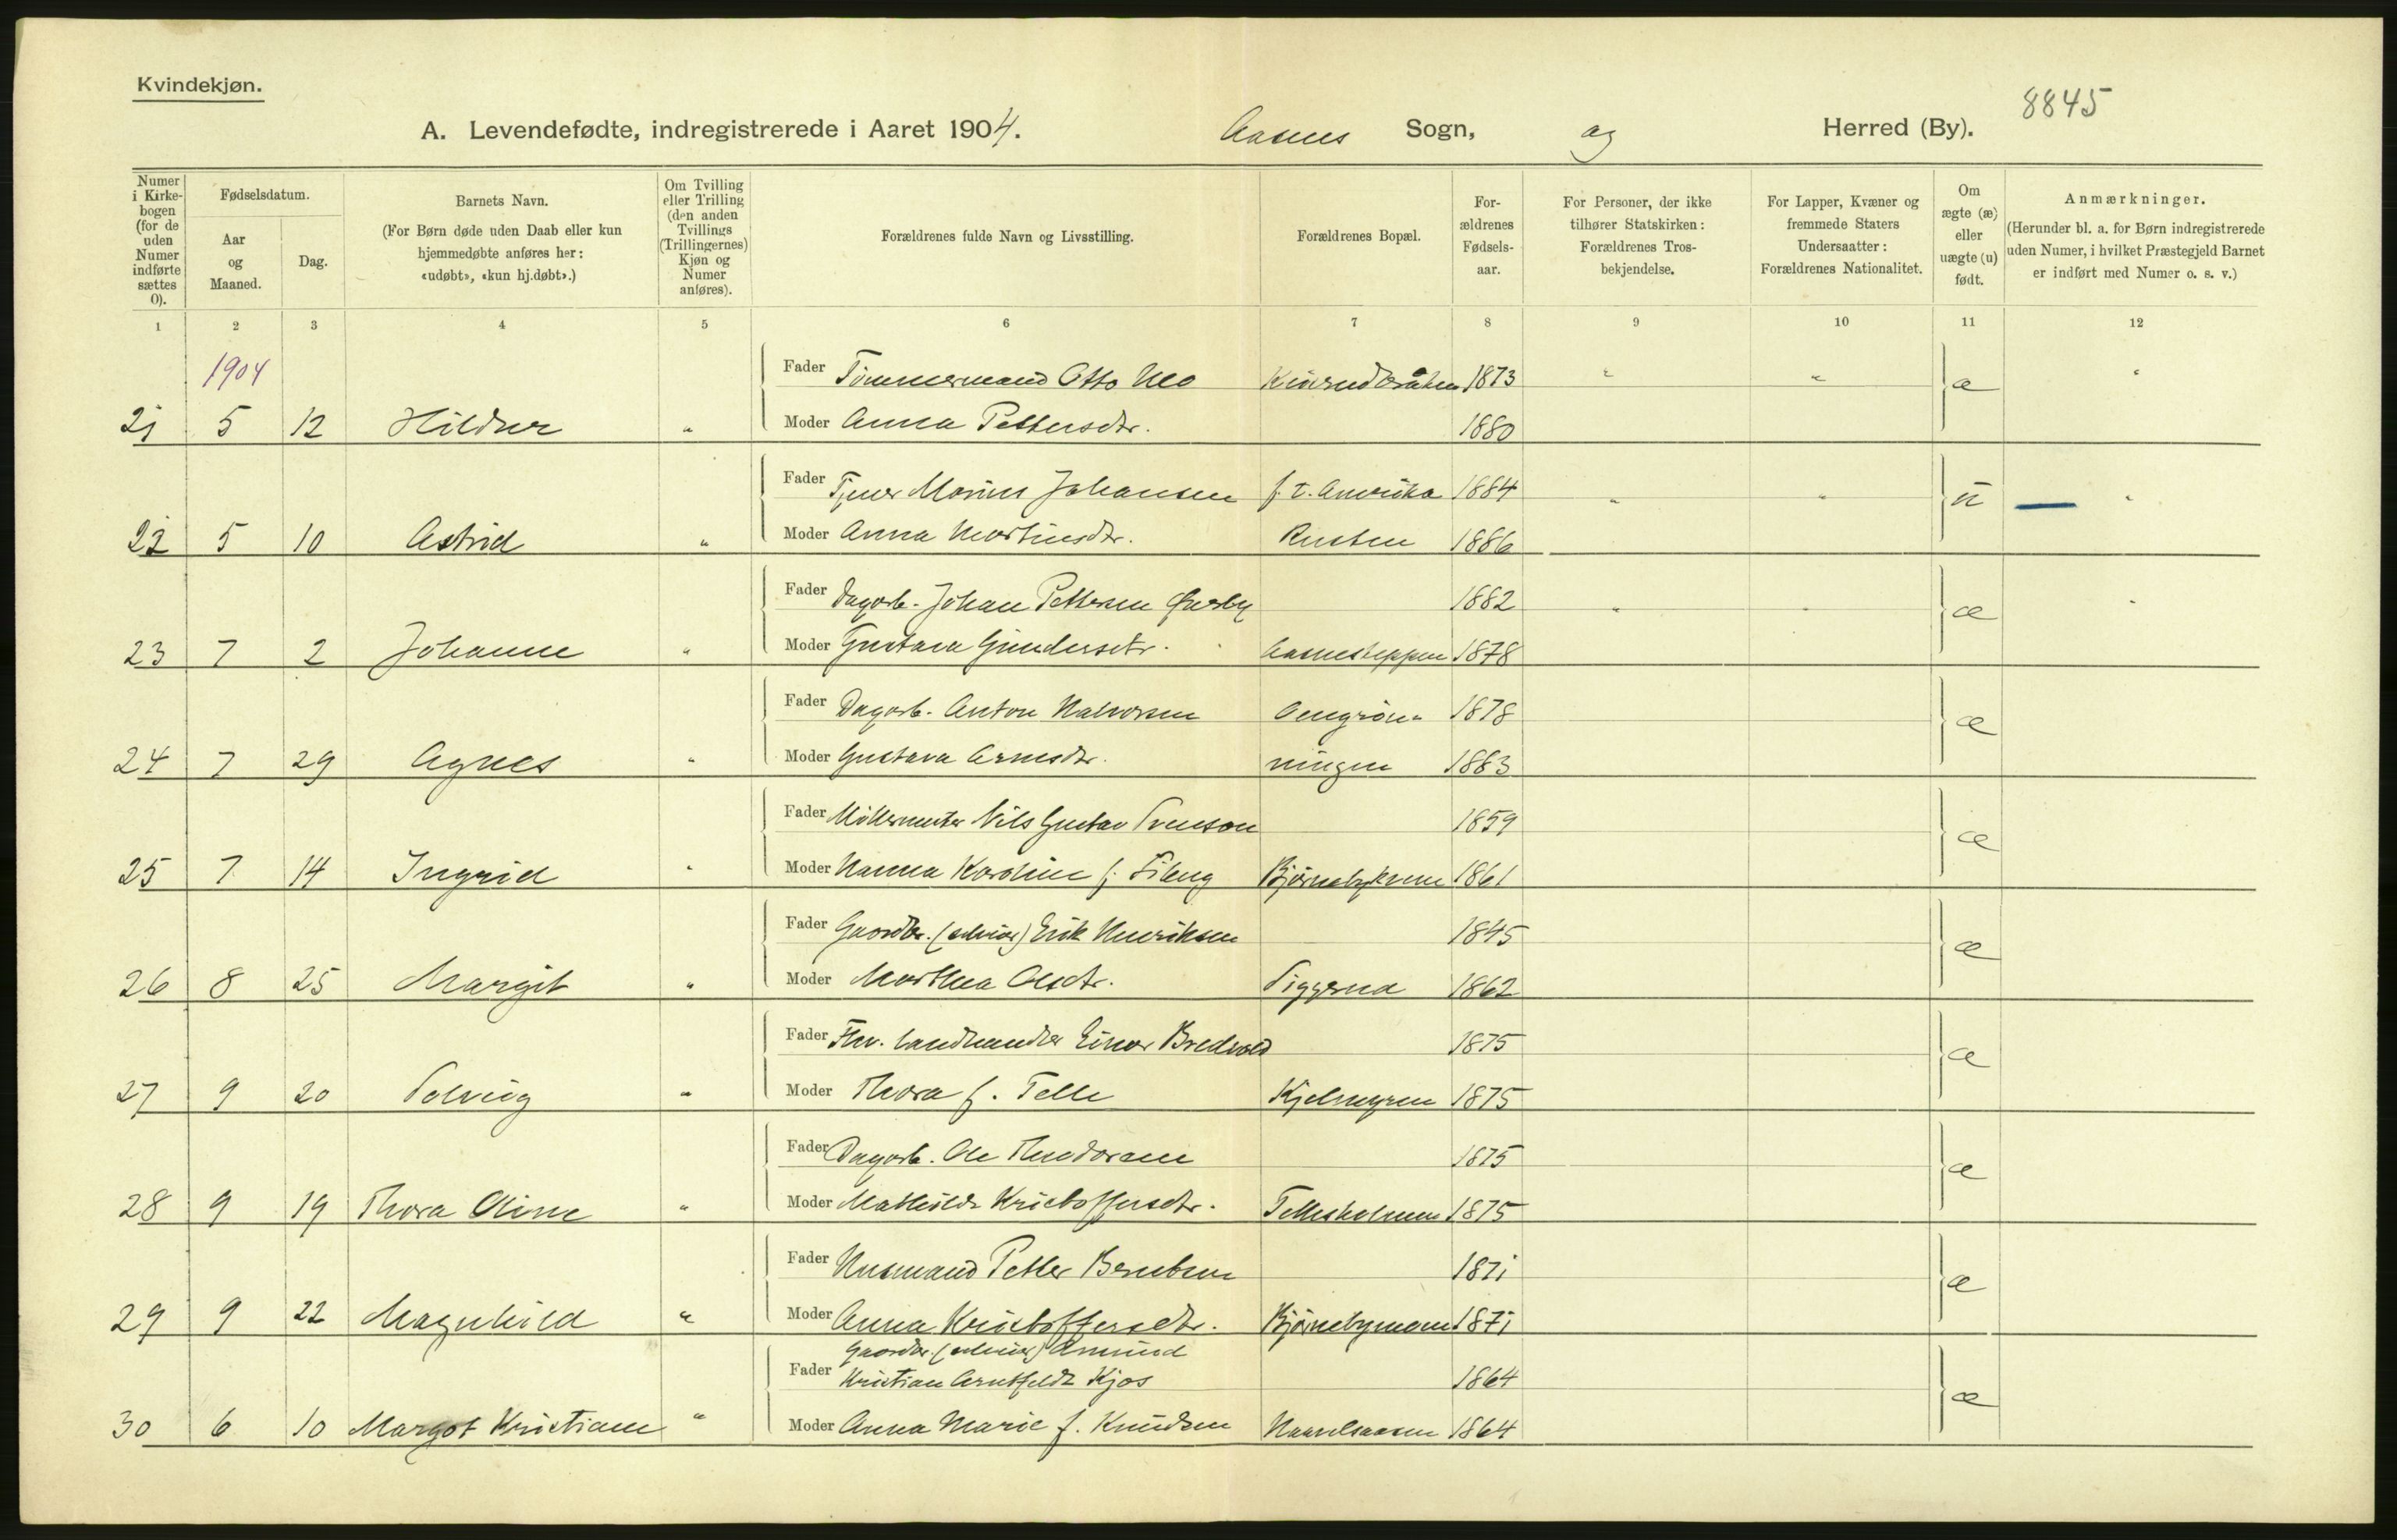 Kvindekjøn.
8845
A. Levendefødte, indregistrerede i Aaret 1904. Aasnes Sogn, og Herred (By).
Numer i Kirkebogen (for de uden Numer indførte sættes 0).
Fødselsdatum.
Aar og Maaned.
Dag.
Barnets Navn.
(For Børn døde uden Daab eller kun hjemmedøbte anføres her: «udøbt», «kun hj.døbt».)
Om Tvilling eller Trilling (den anden Tvillings (Trillingernes) Kjøn og Numer anføres).
Forældrenes fulde Navn og Livsstilling.
Forældrenes Bopæl.
Forældrenes Fødselsaar.
For Personer, der ikke tilhører Statskirken: Forældrenes Trosbekjendelse.
For Lapper, Kvæner og fremmede Staters Undersaatter: Forældrenes Nationalitet.
Om ægte (æ) eller uægte (u) født.
Anmærkninger.
(Herunder bl. a. for Børn indregistrerede uden Numer, i hvilket Præstegjeld Barnet er indført med Numer o. s. v.)
1 2 3 4 5 6 7 8 9 10 11 12
1904 Fader Tømmermand Otto Mo 1873 " " æ "
21 5 12 Hildur " Moder Anna Pettersdtr. 1880
Fader Tjener Marius Johansen f. t. Amerika 1884 " " u — "
22 5 10 Astrid " Moder Anna Martinsdtr. Rusten 1886
Fader Dagarb. Johan Pettersen 1882 " " æ "
23 7 2 Johanne " Moder Gustava Gundersdtr. 1878
Fader Dagarb. Anton Halvorsen 1878 æ
24 7 29 Agnes " Moder Gustava Arnesdtr. 1883
Fader Møllermester Nils Gustav Svenson 1859 æ
25 7 14 Ingrid " Moder Hanna Karoline f. 1861
Fader Gaardbr. (selveier) Erik Henriksen 1845 æ
26 8 25 Margit " Moder Marthea Olsdtr. Siggerud 1862
Fader Fhv. Landhandler Einar Bredvold 1875 æ
27 9 20 Solveig " Moder Thora f. Telle Kjelmyren 1875
Fader Dagarb. Ole Theodorsen 1875 æ
28 9 19 Thora Oline " Moder Mathilde Kristoffersdtr. Velleskolmen 1875
Fader Husmand Petter Berntsen 1871 æ
29 9 22 Magnhild " Moder Anna Kristoffersdtr. Bjørnebymoen 1871
Gaardbr. (selveier) Amund
Fader Kristian Arntfeldt Kjos 1864 æ
30 6 10 Margot Kristiane " Moder Anna Marie f. Knudsen 1864